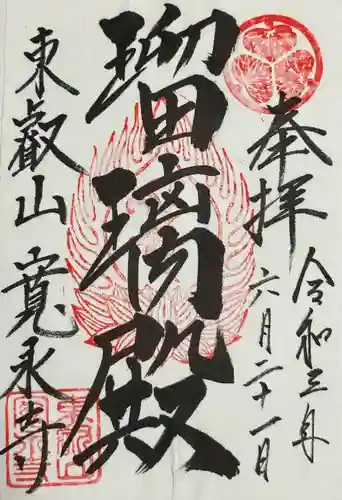 奉拝
令和三年
六月二十一日
瑠璃殿
東叡山 寛永寺